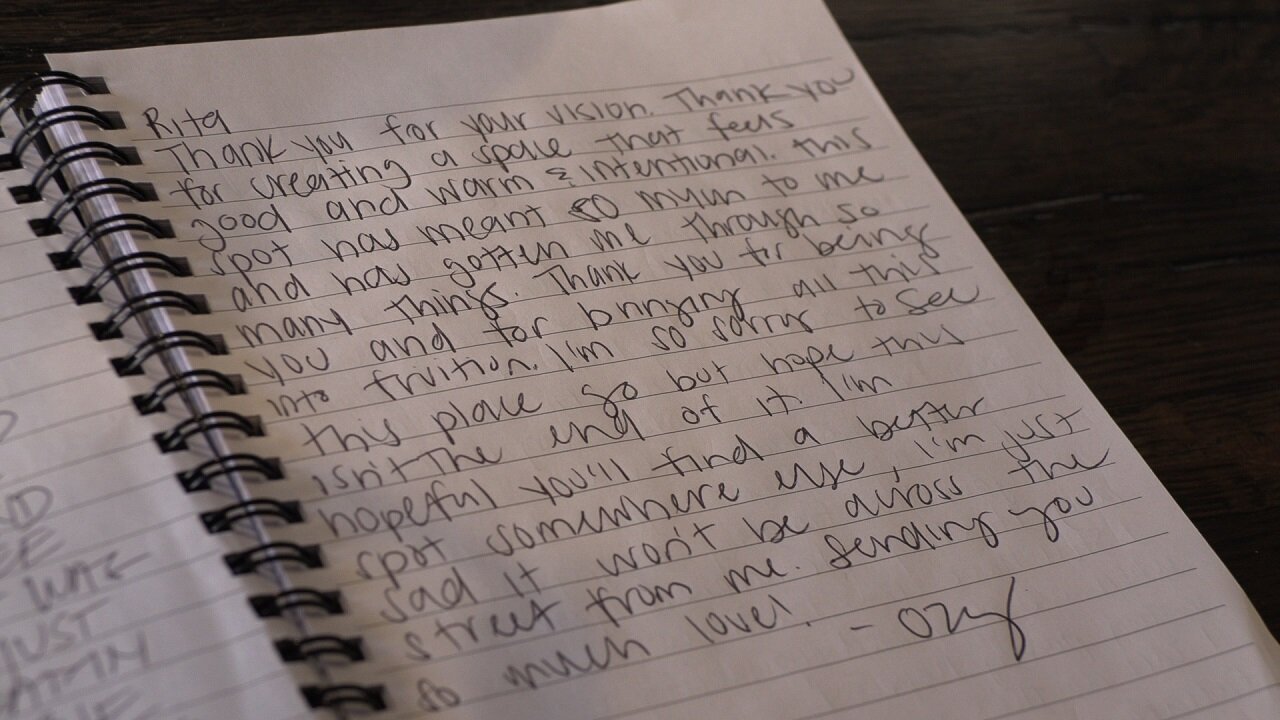 Rita
Thank you for your vision. Thank you
for creating a space that feels
good and warm & intentional. This
spot has meant so much to me
and has gotten me through so
many things. Thank you for being
you and for bringing all this
into fruition. I'm so sorry to see
this place go but hope this
isn't the end of it. I'm
hopeful you'll find a better
spot somewhere else, I'm just
sad it won't be across the
street from me. Sending you
so much love! -
JUST